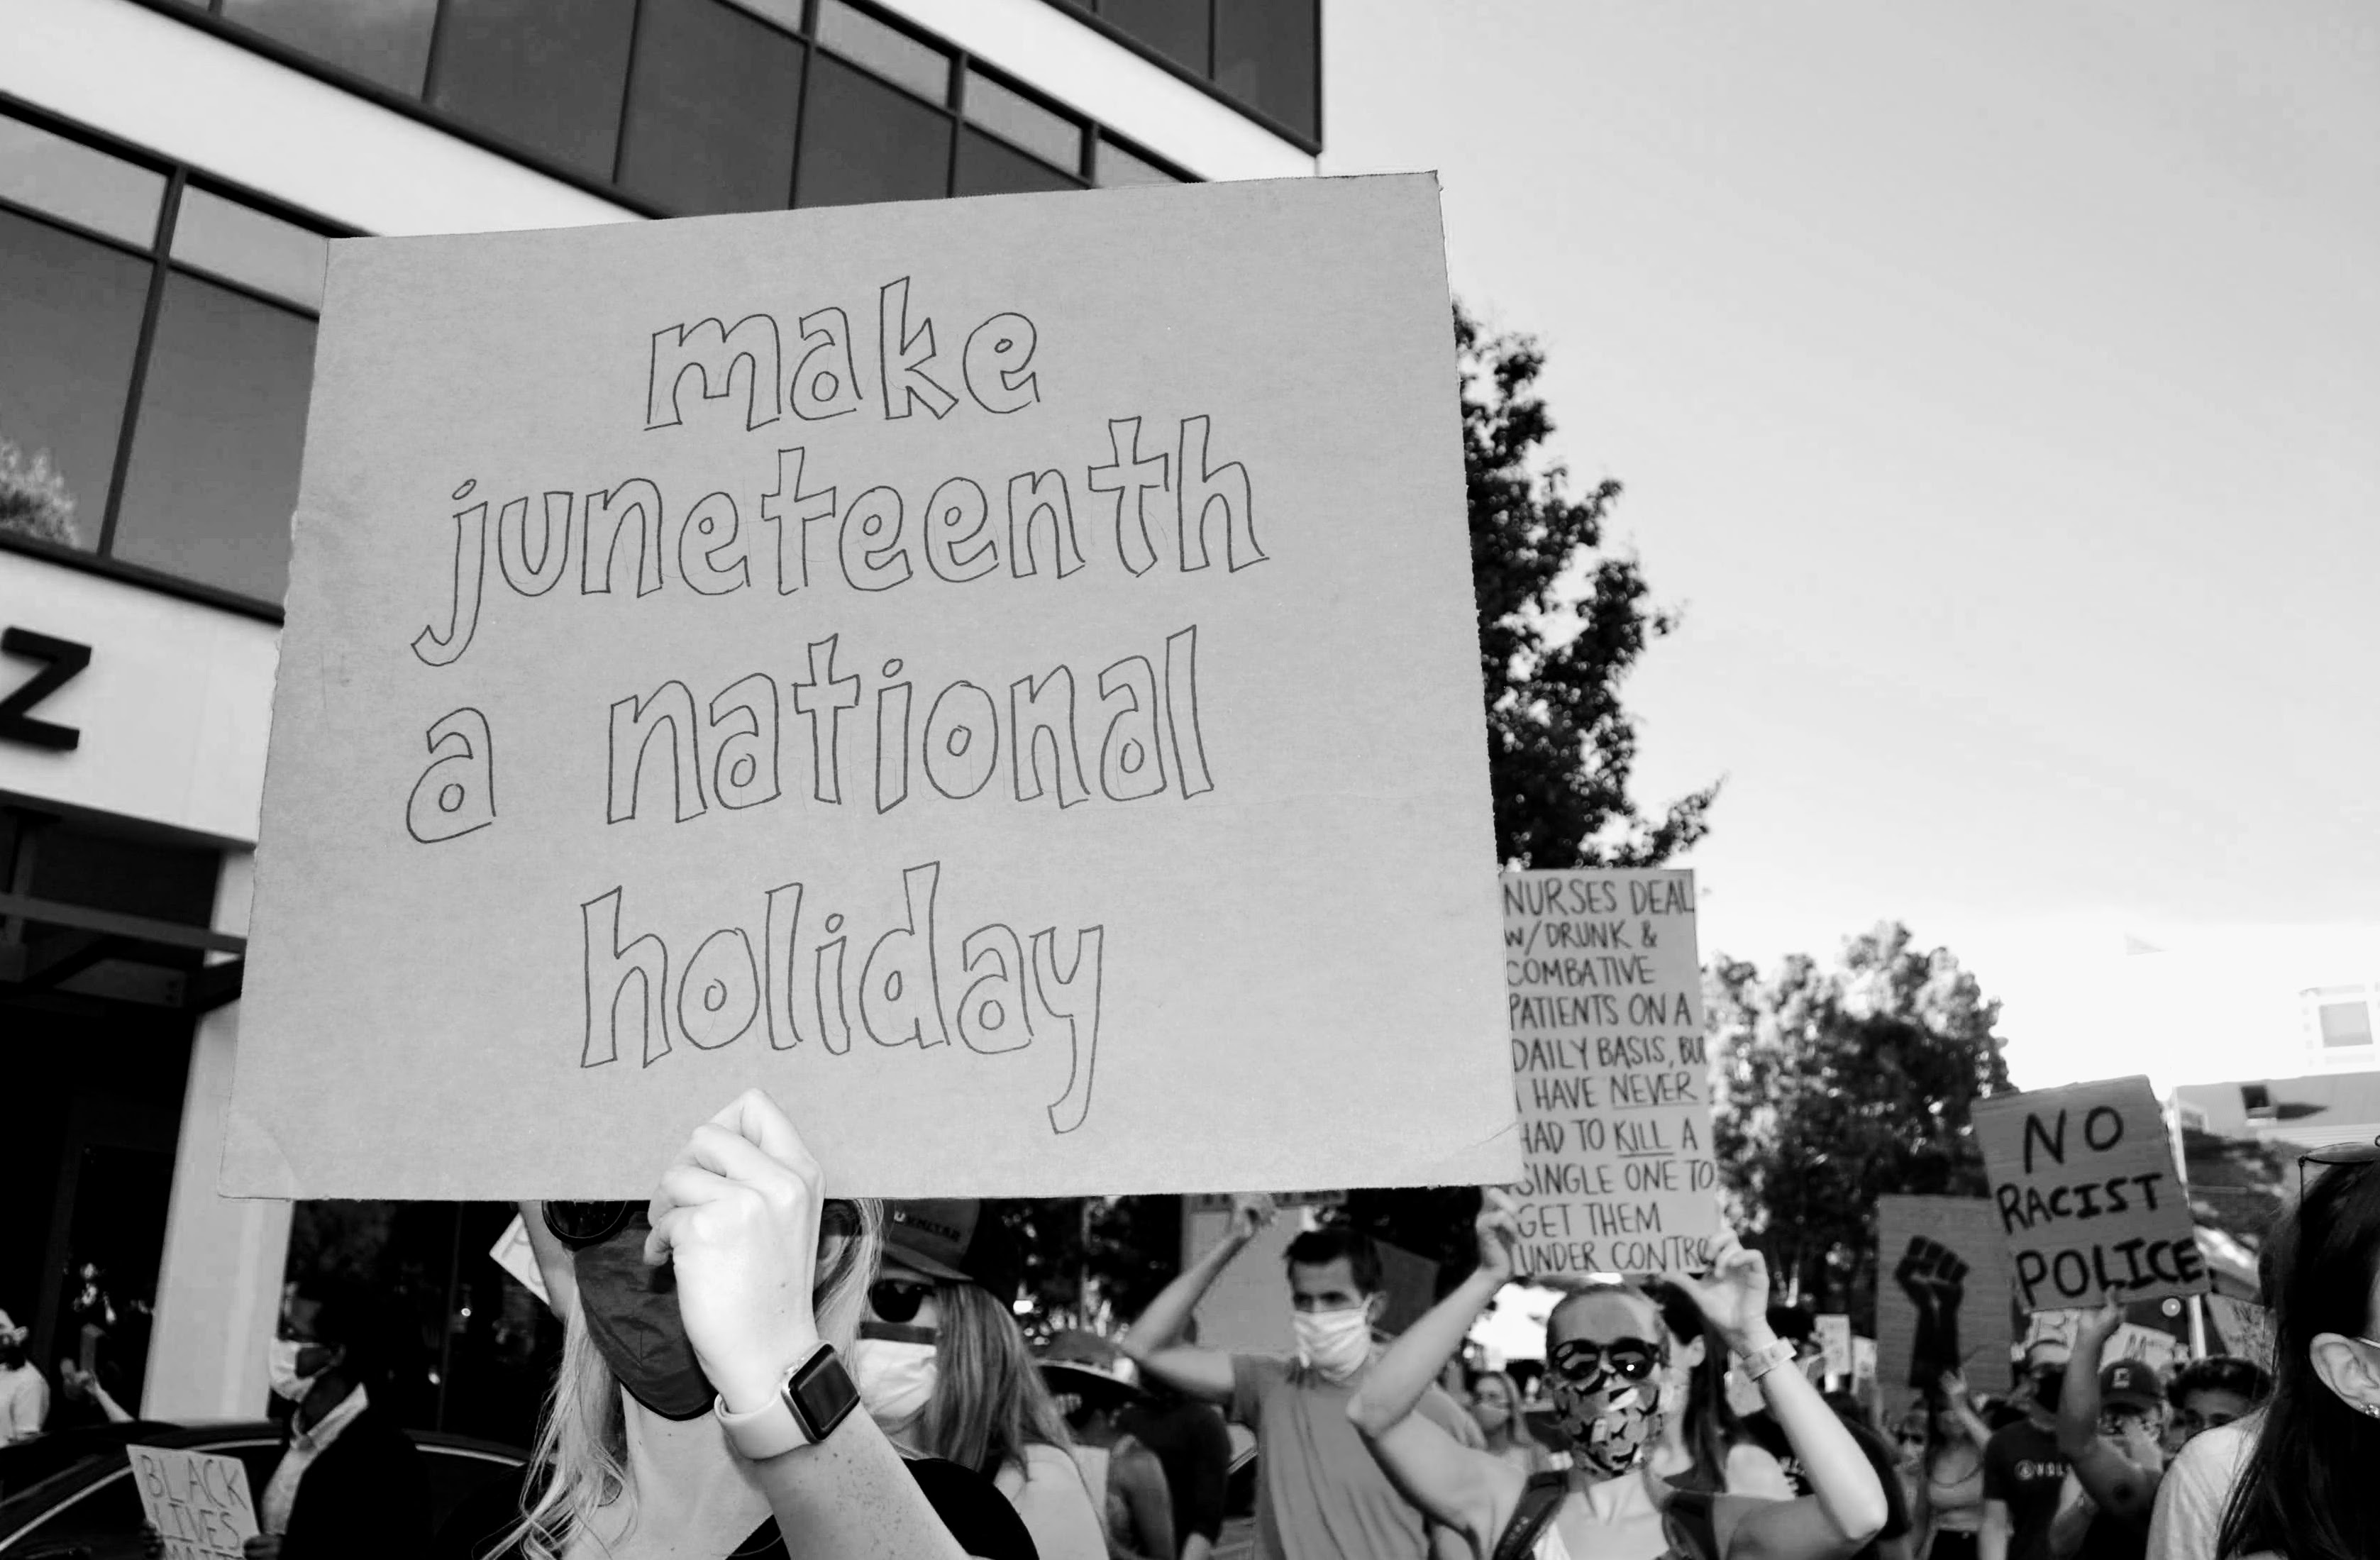 make
juneteenth
a national
holiday
NURSES DEAL
W/DRUNK &
COMBATIVE
PATIENTS ON A
DAILY BASIS, BU
I HAVE NEVER
HAD TO KILL A
SINGLE ONE TO
GET THEM
UNDER CONTRO
NO
RACIST
POLICE
BLACK
LIVES
Z